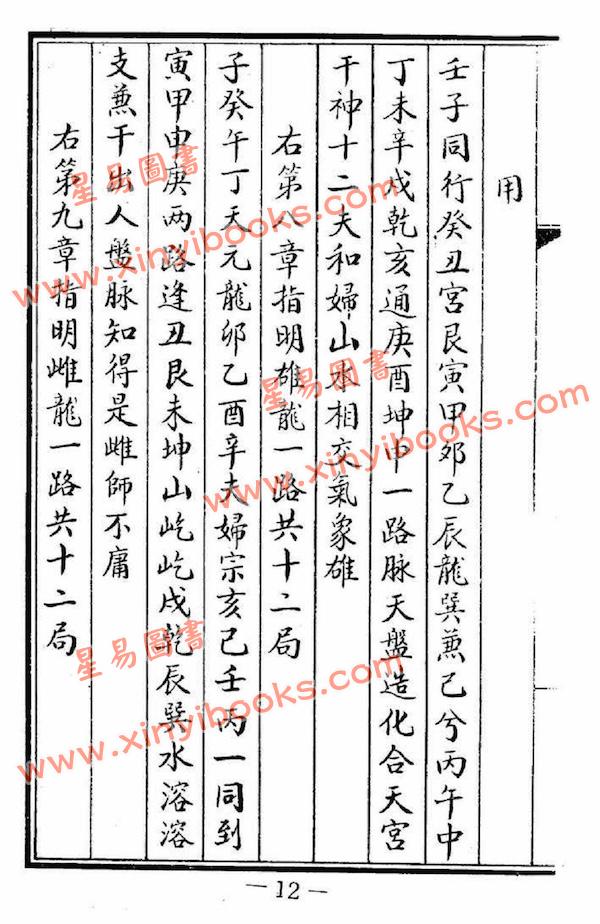 用
壬子同行癸丑宮艮寅甲卯乙辰龍巽蒹己兮丙午中
丁未辛戍乾亥通庚酉坤申一路脉天盤造化合天宮
干神十二夫和婦山水相交氣象雄
右第八章指明雄龍一路共十二局
子癸午丁天元龍卯乙酉辛夫婦宗亥己壬丙一同到
寅甲申庚两路逢丑艮未坤山屹屹戍乾辰巽水溶溶
支蒹干出人盤脉知得是雌師不庸
右第九章指明雌龍一路共十二局
—12—
星易圖書
www.xinyibooks.com
星易圖書
www.xinyibooks.com
星易圖書
www.xinyibooks.com